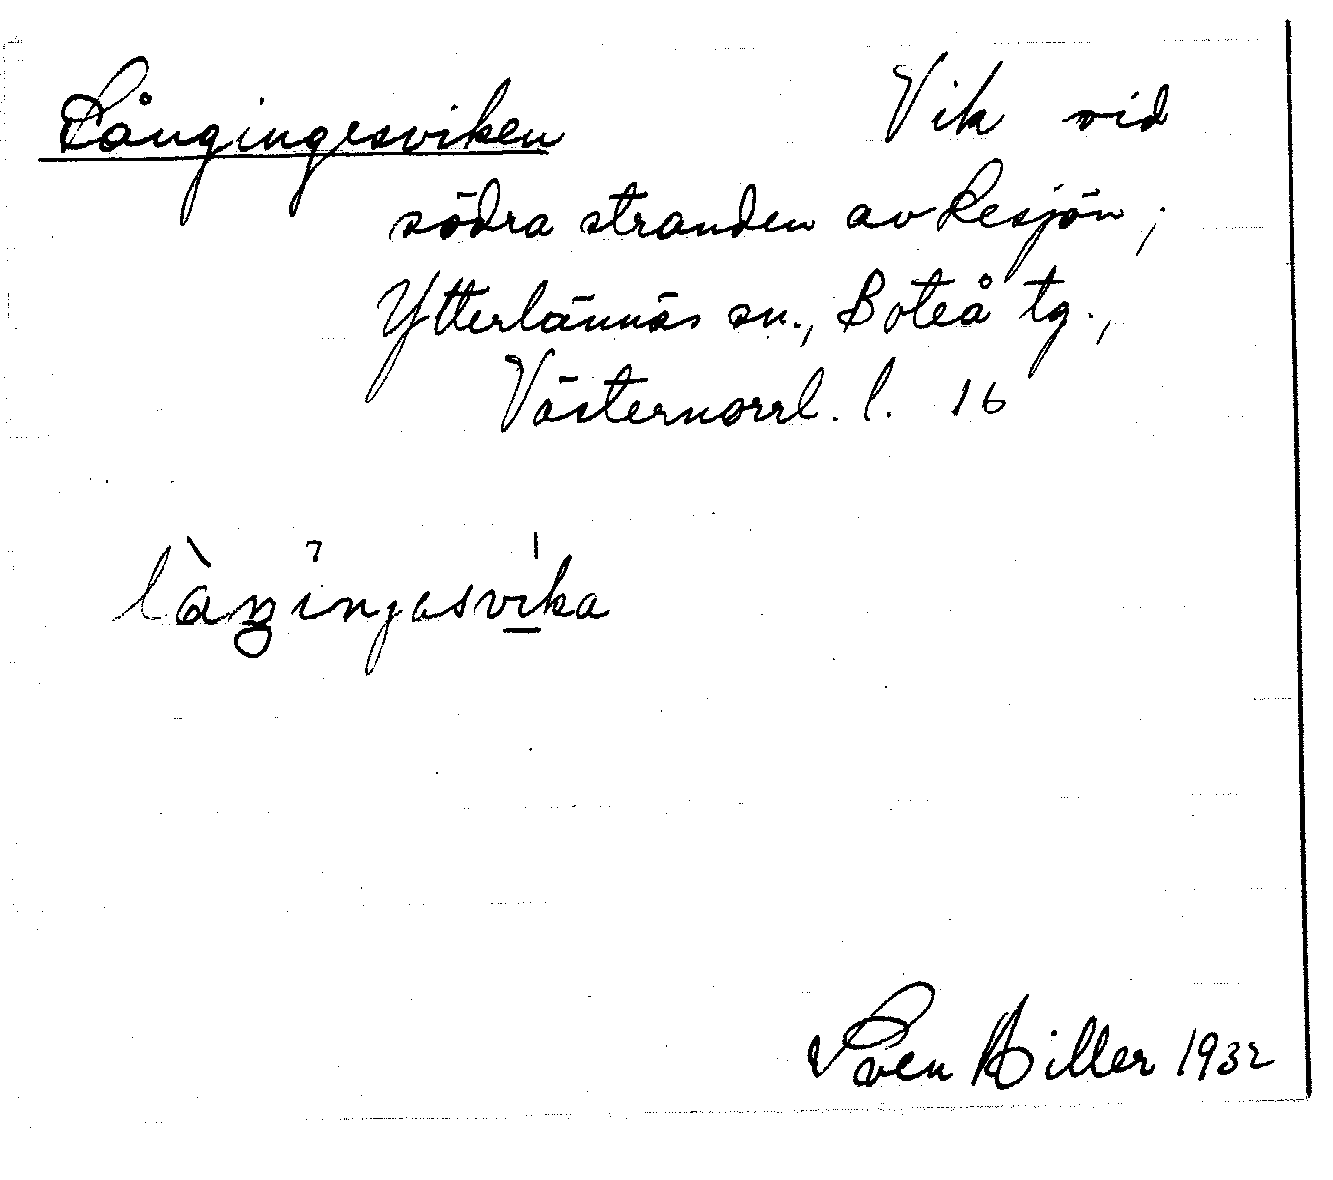 Långingesviken Vik vid
södra stranden av Resjön,
Ytterlännäs sn., Boteå tg.,
Västernorrl. l. 16
Sven Hiller 1932